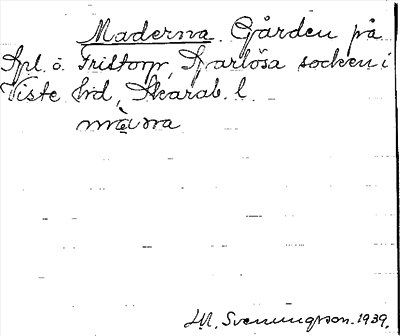 Maderna. Gården på
Spl. ö. Fristorp, Sparlösa socken i
Viste hd, Skarab. l.
màna
H. Svenningsson. 1939.